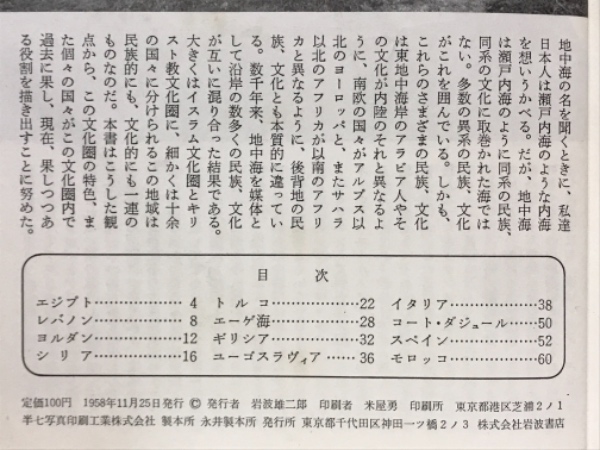 地中海の名を聞くときに、私達
日本人は瀬戸内海のような内海
を想いうかべる。だが、地中海
は瀬戸内海のように同系の民族、
同系の文化に取巻かれた海では
ない。多数の異系の民族、文化
がこれを囲んでいる。しかも、
これらのさまざまの民族、文化
は東地中海岸のアラビア人やそ
の文化が内陸のそれと異なるよ
うに、南欧の国々がアルプス以
北のヨーロッパと、またサハラ
以北のアフリカが以南のアフリ
カと異なるように、後背地の民
族、文化とも本質的に違ってい
る。数千年来、地中海を媒体と
して沿岸の数多くの民族、文化
が互いに混り合った結果である。
大きくはイスラム文化圏とキリ
スト教文化圏に、細かくは十余
の国々に分けられるこの地域は
民族的にも、文化的にも一連の
ものなのだ。本書はこうした観
点から、この文化圏の特色、ま
た個々の国々がこの文化圏内で
過去に果し、現在、果しつつあ
る役割を描き出すことに努めた。
目次
エジプト………………4
レバノン………………8
ヨルダン………………12
シリア…………………16
トルコ…………………22
エーゲ海………………28
ギリシア………………32
ユーゴスラヴィア……36
イタリア………………38
コート・ダジュール……50
スペイン………………52
モロッコ………………60
定価100円 1958年11月25日発行 © 発行者 岩波雄二郎 印刷者 米屋勇 印刷所 東京都港区芝浦2ノ1
半七写真印刷工業株式会社 製本所 永井製本所 発行所 東京都千代田区神田一ツ橋2ノ3 株式会社岩波書店